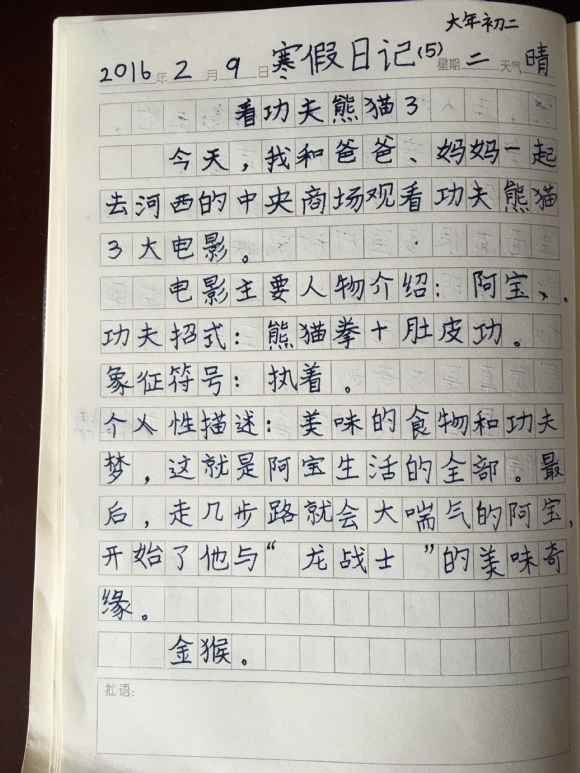 大年初二
2016年2月9日寒假日记(5)星期二天气晴
看功夫熊猫3
今天,我和爸爸、妈妈一起
去河西的中央商场观看功夫熊猫
3大电影。
电影主要人物介绍:阿宝、。
功夫招式:熊猫拳+肚皮功。
象征符号:执着。
个人性描述:美味的食物和功夫
梦,这就是阿宝生活的全部。最
后,走几步路就会大喘气的阿宝,
开始了他与“龙战士”的美味奇
缘。
金猴。
批语: